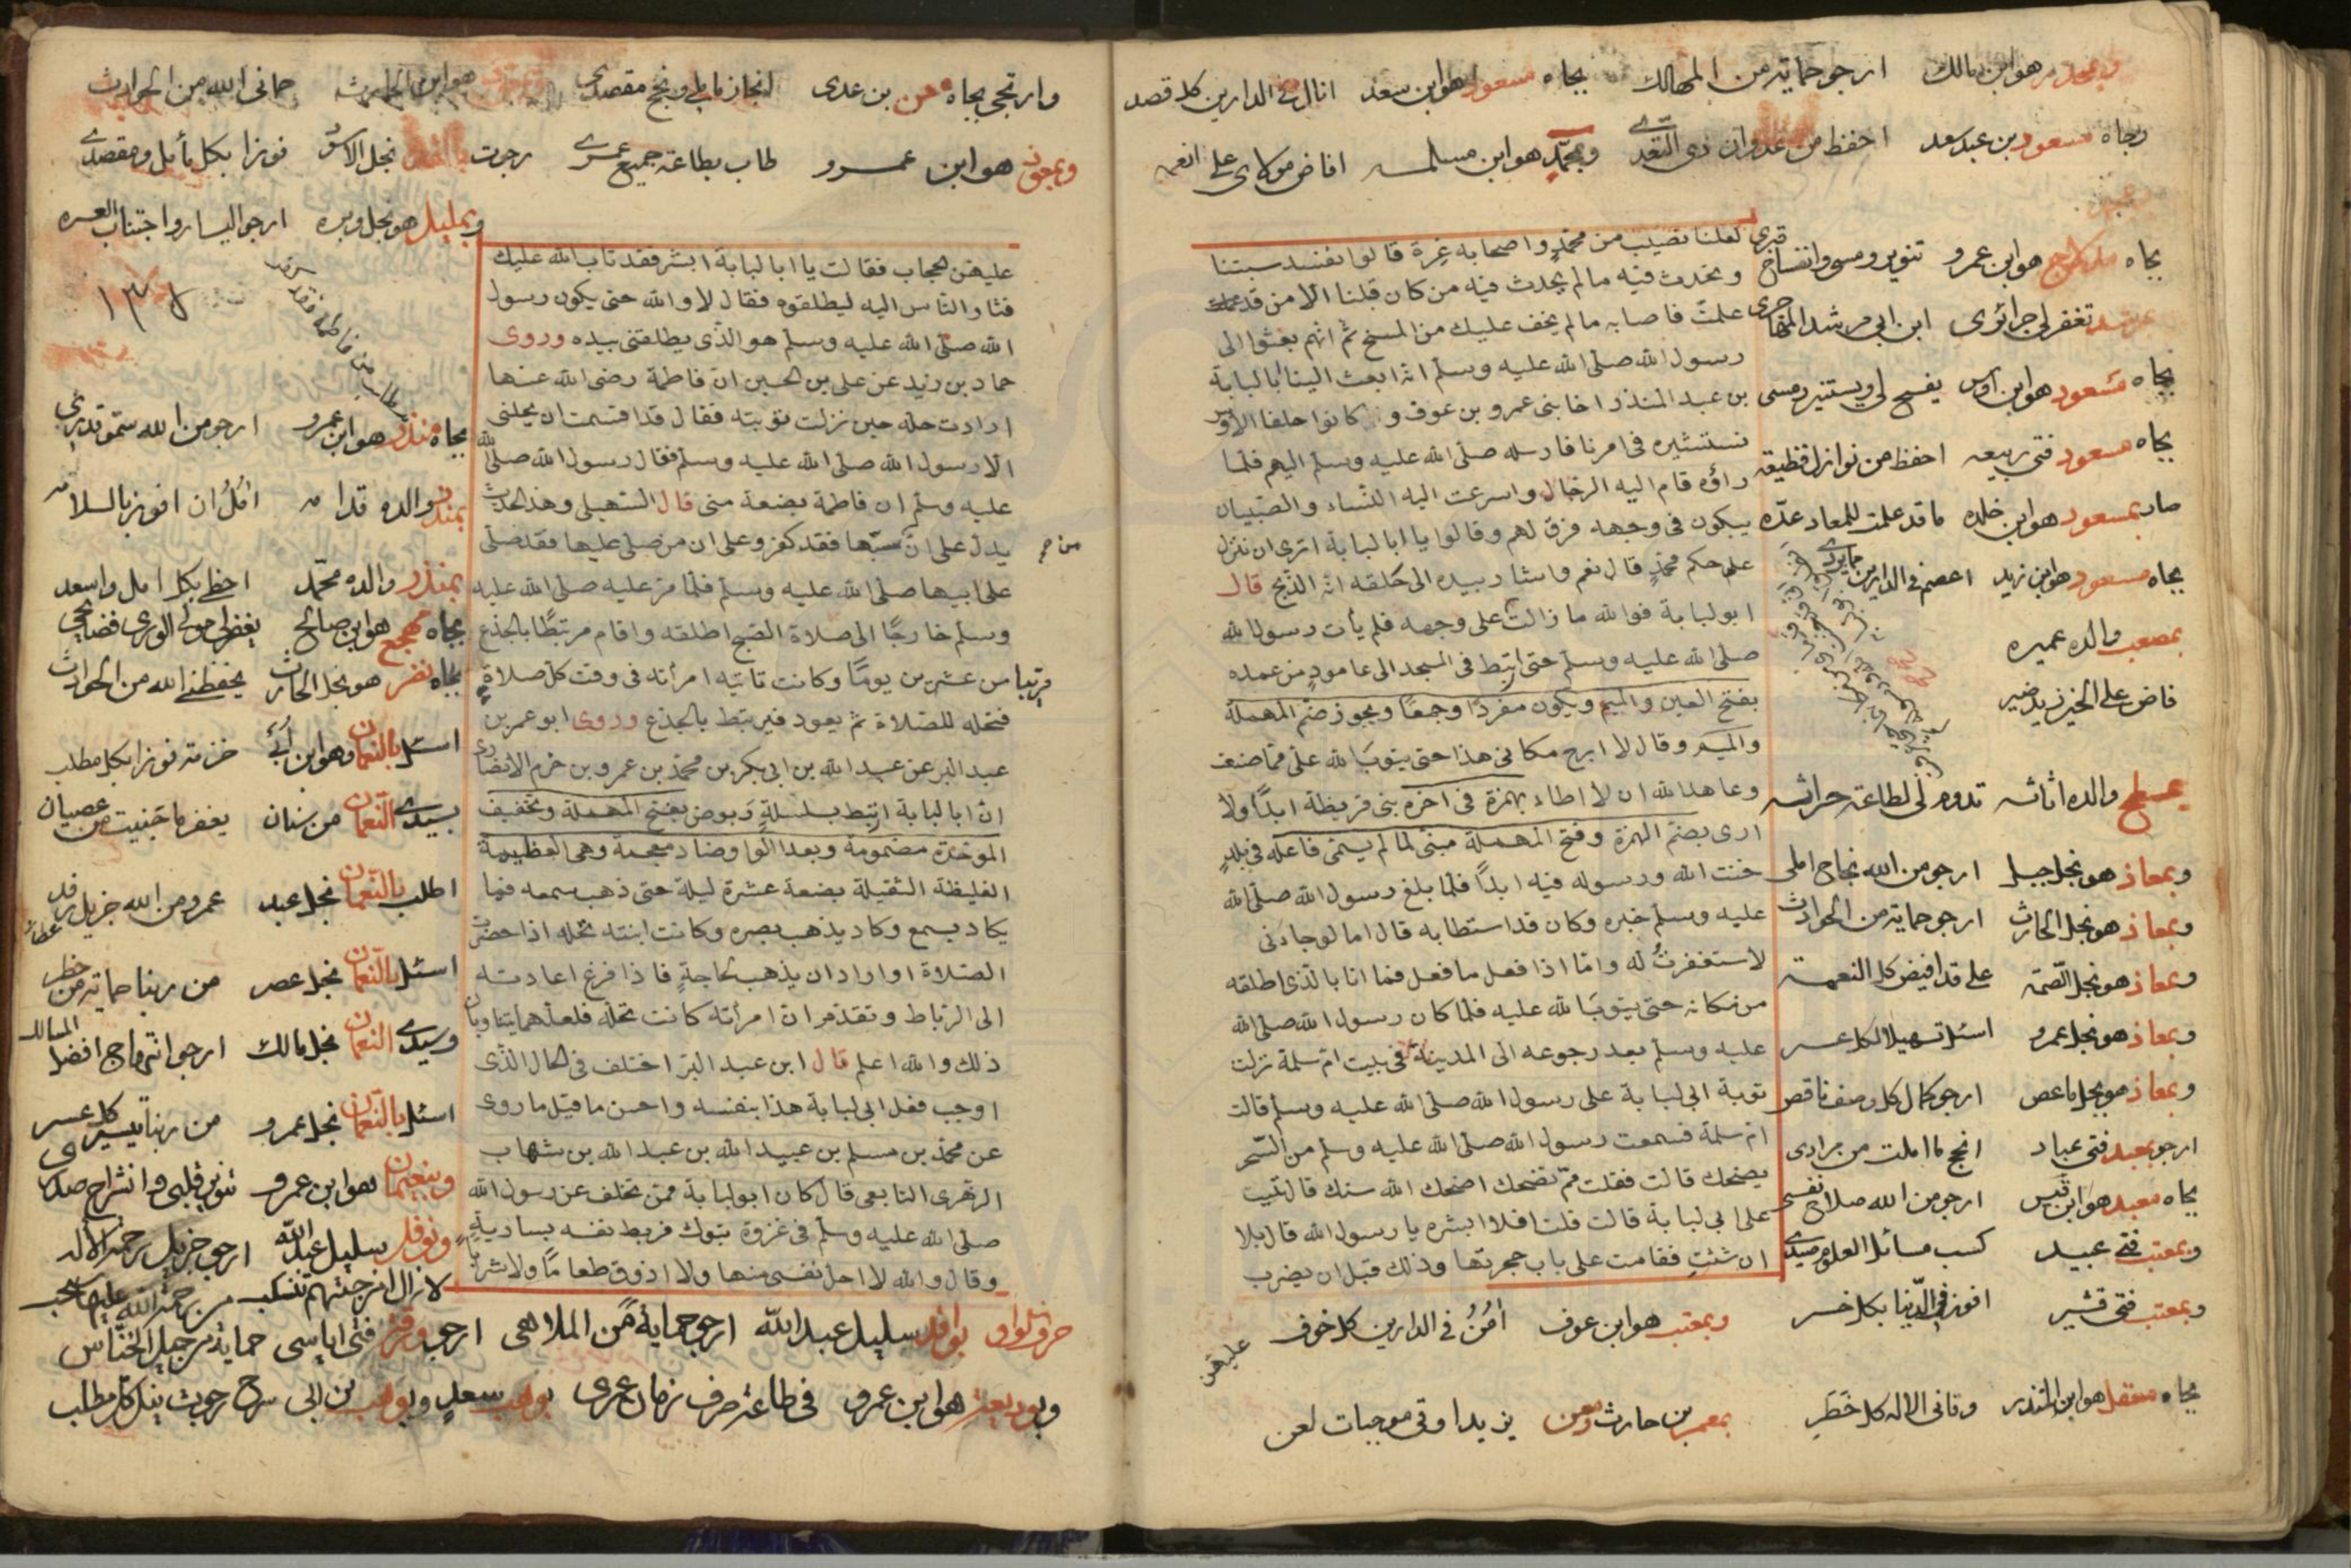 وبمحرز هو ابن مالك ارجو حمايته من المهالك بجاه مسعود هو ابن سعد انال في الدارين كل قصد
وبجاه مسعود بن عبد سعد احفظ من عدوان ذي التعدي وبمحمد هو ابن مسلمه افاض مولاي علي انعمه
لعلنا نصيب من محمد واصحابه غرة قالوا نفسد سبتنا
ونحدث فيه مالم يحدث فيه من كان قبلنا الا من قد
علمت فاصابه مالم يخف عليك من المسخ ثم انهم بعثوا الى
رسول الله صلى الله عليه وسلم ان ابعث الينا ابا لبابة
بن عبد المنذر اخا بنى عمرو بن عوف وكانوا حلفا الاوس
نستشيره فى امرنا فارسله صلى الله عليه وسلم اليهم فلما
راوه قام اليه الرجال واسرعت اليه النساء والصبيان
يبكون فى وجهه فرق لهم وقالوا يا ابا لبابة اترى ان ننزل
على حكم محمد قال نعم واشار بيده الى حلقه انه الذبح قال
ابو لبابة فوالله ما زالت على وجهه فلم يأت رسول الله
صلى الله عليه وسلم حتى ارتبط فى المسجد الى عامود من عمده
بفتح العين والميم ويكون مفردا وجمعا ويجوز ضم المهملة
والميم وقال لا ابرح مكانى هذا حتى يتوب الله على مما صنعت
وعاهد الله ان لا اطاء بهمزة فى اخره بنى قريظة ابدا ولا
ارى بضم الهمزة وفتح المهملة مبنى لما لم يسمى فاعله فى بلد
خنت الله ورسوله فيه ابدا فلما بلغ رسول الله صلى الله
عليه وسلم خبره وكان قد استطابه قال اما لو جاءنى
لاستغفرت له واما اذا فعل ما فعل فما انا بالذى اطلقه
من مكانه حتى يتوب الله عليه فلما كان رسول الله صلى الله
عليه وسلم بعد رجوعه الى المدينة فى بيت ام سلمة نزلت
توبة ابى لبابة على رسول الله صلى الله عليه وسلم قالت
ام سلمة فسمعت رسول الله صلى الله عليه وسلم من السحر
يضحك قالت فقلت مم تضحك اضحك الله سنك قال تيب
على ابى لبابة قالت قلت افلا ابشره يا رسول الله قال بلا
ان شئت فقامت على باب حجرتها وذلك قبل ان يضرب
بجاه هو ابن عمرو تنوير
بجاه مسعود هو ابن اوس يفسح لي ويستنير رمسي
بجاه مسعود فتى ربيعه احفظ من نوازل فظيعه
بمسعود هو ابن خلده ما قد علمت للمعاد عده
بجاه مسعود هو ابن زيد اعصم في الدارين
بمصعب والده عميره
فاض علي الخير
والده اثاثه تدوم لي لطاعة حراثه
وبمعاذ هو نجل جبل ارجو من الله نجاح املي
وبمعاذ هو نجل الحارث ارجو حمايته من الحوادث
وبمعاذ هو نجل الصمة علي قد افيض كل النعمة
وبمعاذ هو نجل عمرو اسئل تسهيلا لكل عسر
وبمعاذ هو نجل ماعص ارجو كمال كل وصف ناقص
ارجو بمعبد فتى عباد انجح ما املت من مرادي
بجاه معبد هو ابن قيس ارجو من الله صلاح نفسي
وبمعتب فتى عبيد كسب مسائل العلوم صيدي
وبمعتب فتى قشير افوز في الدنيا بكل خير
وبمعتب هو ابن عوف امن في الدارين كل خوف
عليهن
بجاه معقل هو ابن المنذر وقاني الاله كل خطر بمعمر بن حارث ومعن يزيد اوقى موجبات لعن
وارتجي بجاه معن بن عدي انجاز مأملي ونجح مقصدي هو ابن الحارث حماني الله من الحوادث
وبمعوذ هو ابن عمرو طاب بطاعة جميع عمري رجوت بالمقداد نجل الاسود فوزا بكل مأمل ومقصدي
وبمليل هو نجل وبره ارجو اليسار واجتناب العسره
عليهن الحجاب فقالت يا ابا لبابة ابشر فقد تاب الله عليك
فثار الناس اليه ليطلقوه فقال لا والله حتى يكون رسول
الله صلى الله عليه وسلم هو الذى يطلقنى بيده وروى
حماد بن زيد عن على بن الحسين ان فاطمة رضى الله عنها
ارادت حله حين نزلت توبته فقال قد اقسمت ان يحلنى
الا رسول الله صلى الله عليه وسلم فقال رسول الله صلى الله
عليه وسلم ان فاطمة بضعة منى قال السهيلى وهذا الحديث
يدل على ان من سبها فقد كفر وعلى ان من صلى عليها فقد صلى
على ابيها صلى الله عليه وسلم فلما مر عليه صلى الله عليه
وسلم خارجا الى صلاة الصبح اطلقه واقام مرتبطا بالجذع
قريبا من عشرين يوما وكانت تاتيه امرأته فى وقت كل صلاة
فتحله للصلاة ثم يعود فيرتبط بالجذع وروى ابو عمر بن
عبد البر عن عبد الله بن ابى بكر بن محمد بن عمرو بن حزم الانصارى
ان ابا لبابة ارتبط بسلسلة ربوض بفتح المهملة وتخفيف
الموحدة مضمومة وبعد الواو ضاد معجمة وهى العظيمة
الغليظة الثقيلة بضعة عشرة ليلة حتى ذهب سمعه فما
يكاد يسمع وكاد يذهب بصره وكانت ابنته تحله اذا حضرت
الصلاة او اراد ان يذهب لحاجة فاذا فرغ اعادته
الى الرباط وتقدم ان امرأته كانت تحله فلعلهما يتناوبان
ذلك والله اعلم قال ابن عبد البر اختلف فى الحال الذى
اوجب فعل ابى لبابة هذا بنفسه واحسن ما قيل ما روى
عن محمد بن مسلم بن عبيد الله بن عبد الله بن شهاب
الزهرى التابعى قال كان ابو لبابة ممن تخلف عن رسول الله
صلى الله عليه وسلم فى غزوة تبوك فربط نفسه بسارية
وقال والله لا احل نفسى منها ولا اذوق طعاما ولا شرابا
بجاه منذر هو ابن عمرو ارجو من الله سمو قدري
بمنذر والده قدامه امل ان افوز بالسلامه
بمنذر والده محمد احظى بكل امل واسعد
بجاه مهجع هو ابن صالح يغفر لي مولى الورى فضايحي
بجاه نضر هو نجل الحارث يحفظني الله من الحوادث
اسئل بالنعمان وهو ابن ابي خزمة فوزا بكل مطلب
بسيدي النعمان من سنان يغفر ما جنيت من عصيان
اطلب بالنعمان نجل عبد عمرو من الله جزيل رفد
اسئل بالنعمان نجل عصر من ربنا حمايته من خطر
وسيدي النعمان نجل مالك ارجو افضل المسالك
اسئل بالنعمان نجل عمرو من ربنا تيسير كل عسر
وبنعيمان هو ابن عمرو تنوير قلبي وانشراح صدري
ونوفل سليل عبد الله ارجو جزيل رحمة الاله
حرف الواو بواقد سليل عبد الله ارجو حماية من الملاهي ارجو فتى اياسي حماية من حيل الخناس
وبوديعة هو ابن عمرو في طاعة صرف زمان عمري بوهب سعد وبوهب بن ابي سرح رجوت نيل كل مطلب